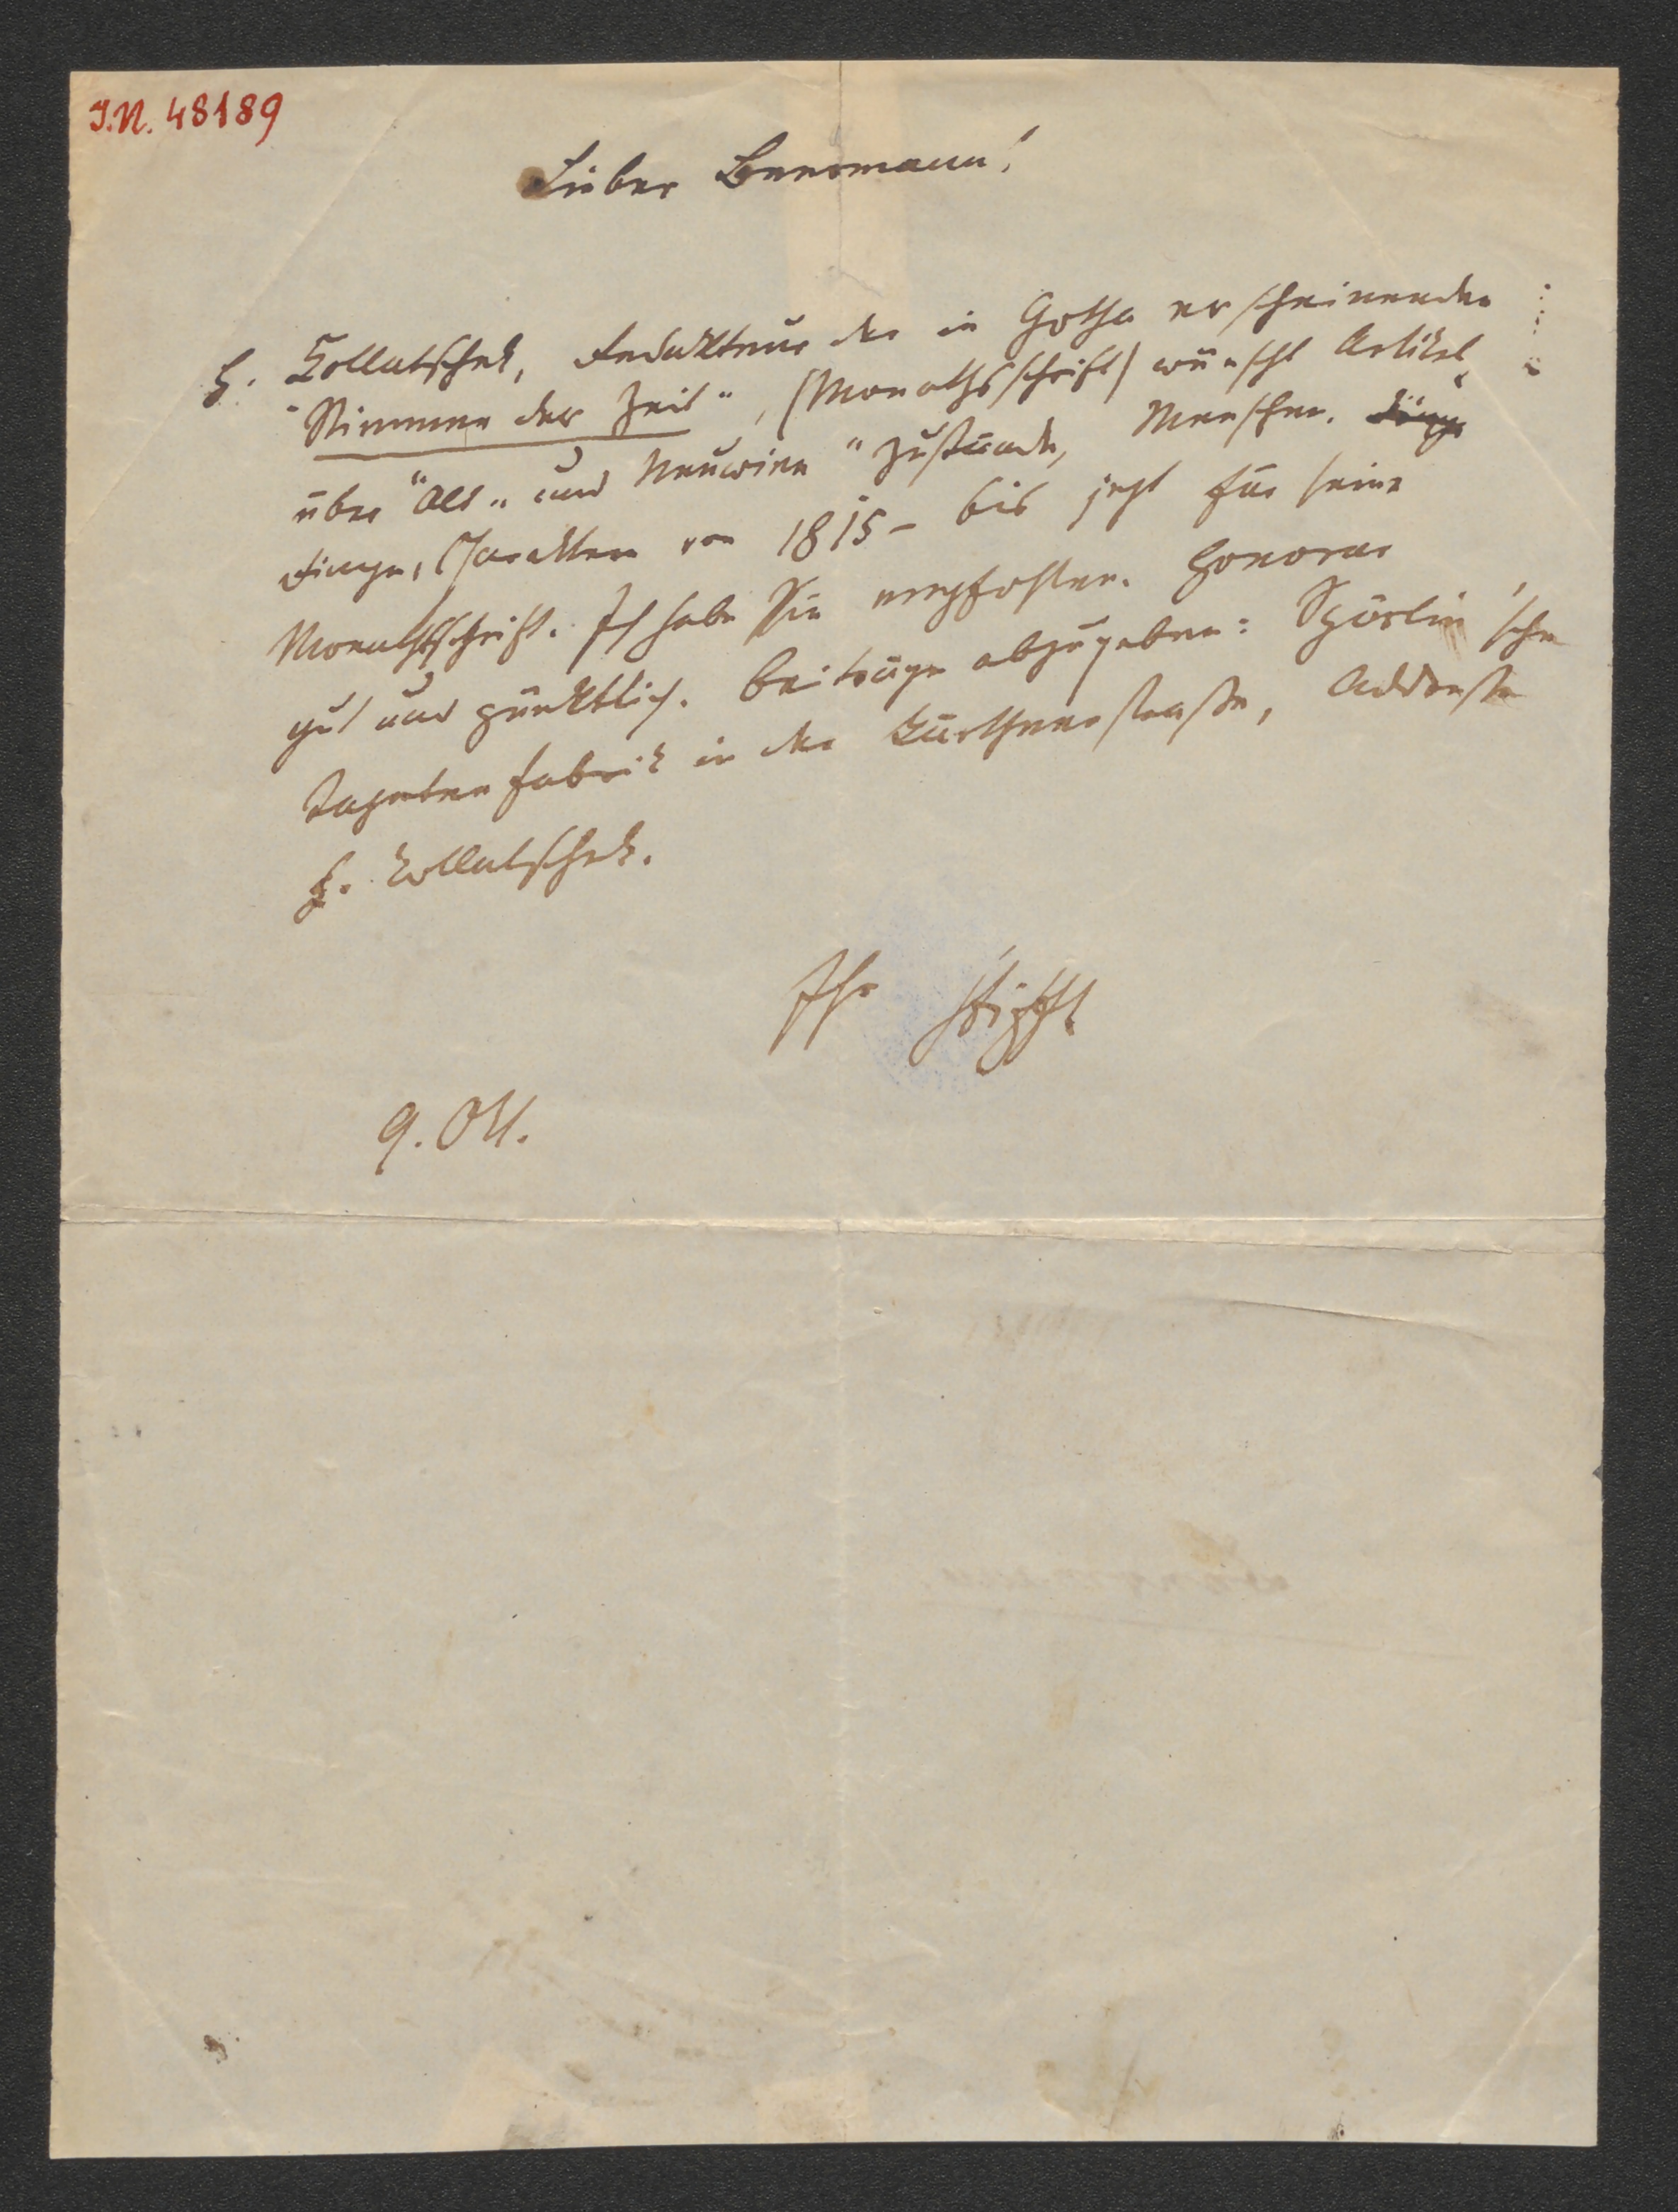 I.N. 48189
Lieber Beermann!
H. Kollatschek, Redakteur der in Gotha erscheinenden
"Stimmen der Zeit", (Monathsschrift) wünscht Artikel
über "Alt" und Neuwien" Zustände, Menschen, Dinge
Dinge, Charaktere von 1815 – bis jezt für seine
Monathsschrift. Ich habe Sie empfohlen. Honorar
gut und pünktlich. Beiträge abzugeben: Spörlin'sche
Tapetenfabrik in der Kärthnerstraße, Addresse
H. Kollatschek.
Ihr Stifft
9. Okt.